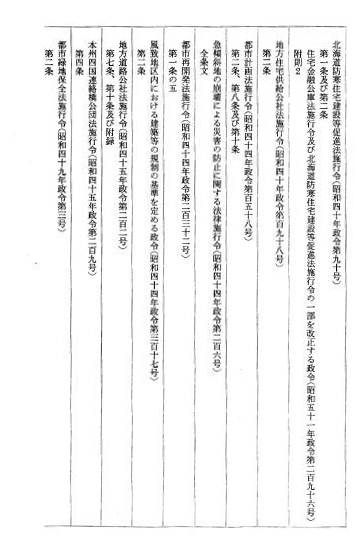 北海道防寒住宅建設等促進法施行令(昭和四十年政令第九十号)
第一条及び第二条
住宅金融公庫法施行令及び北海道防寒住宅建設等促進法施行令の一部を改正する政令(昭和五十一年政令第二百九十六号)
附則2
地方住宅供給公社法施行令(昭和四十年政令第百九十八号)
第二条
都市計画法施行令(昭和四十四年政令第百五十八号)
第二条、第八条及び第十条
急傾斜地の崩壊による災害の防止に関する法律施行令(昭和四十四年政令第二百六号)
全条文
都市再開発法施行令(昭和四十四年政令第二百三十二号)
第一条の五
風致地区内における建築等の規制の基準を定める政令(昭和四十四年政令第三百十七号)
第二条
地方道路公社法施行令(昭和四十五年政令第二百二号)
第七条、第十条及び附録
本州四国連絡橋公団法施行令(昭和四十五年政令第二百九号)
第四条
都市緑地保全法施行令(昭和四十九年政令第三号)
第二条